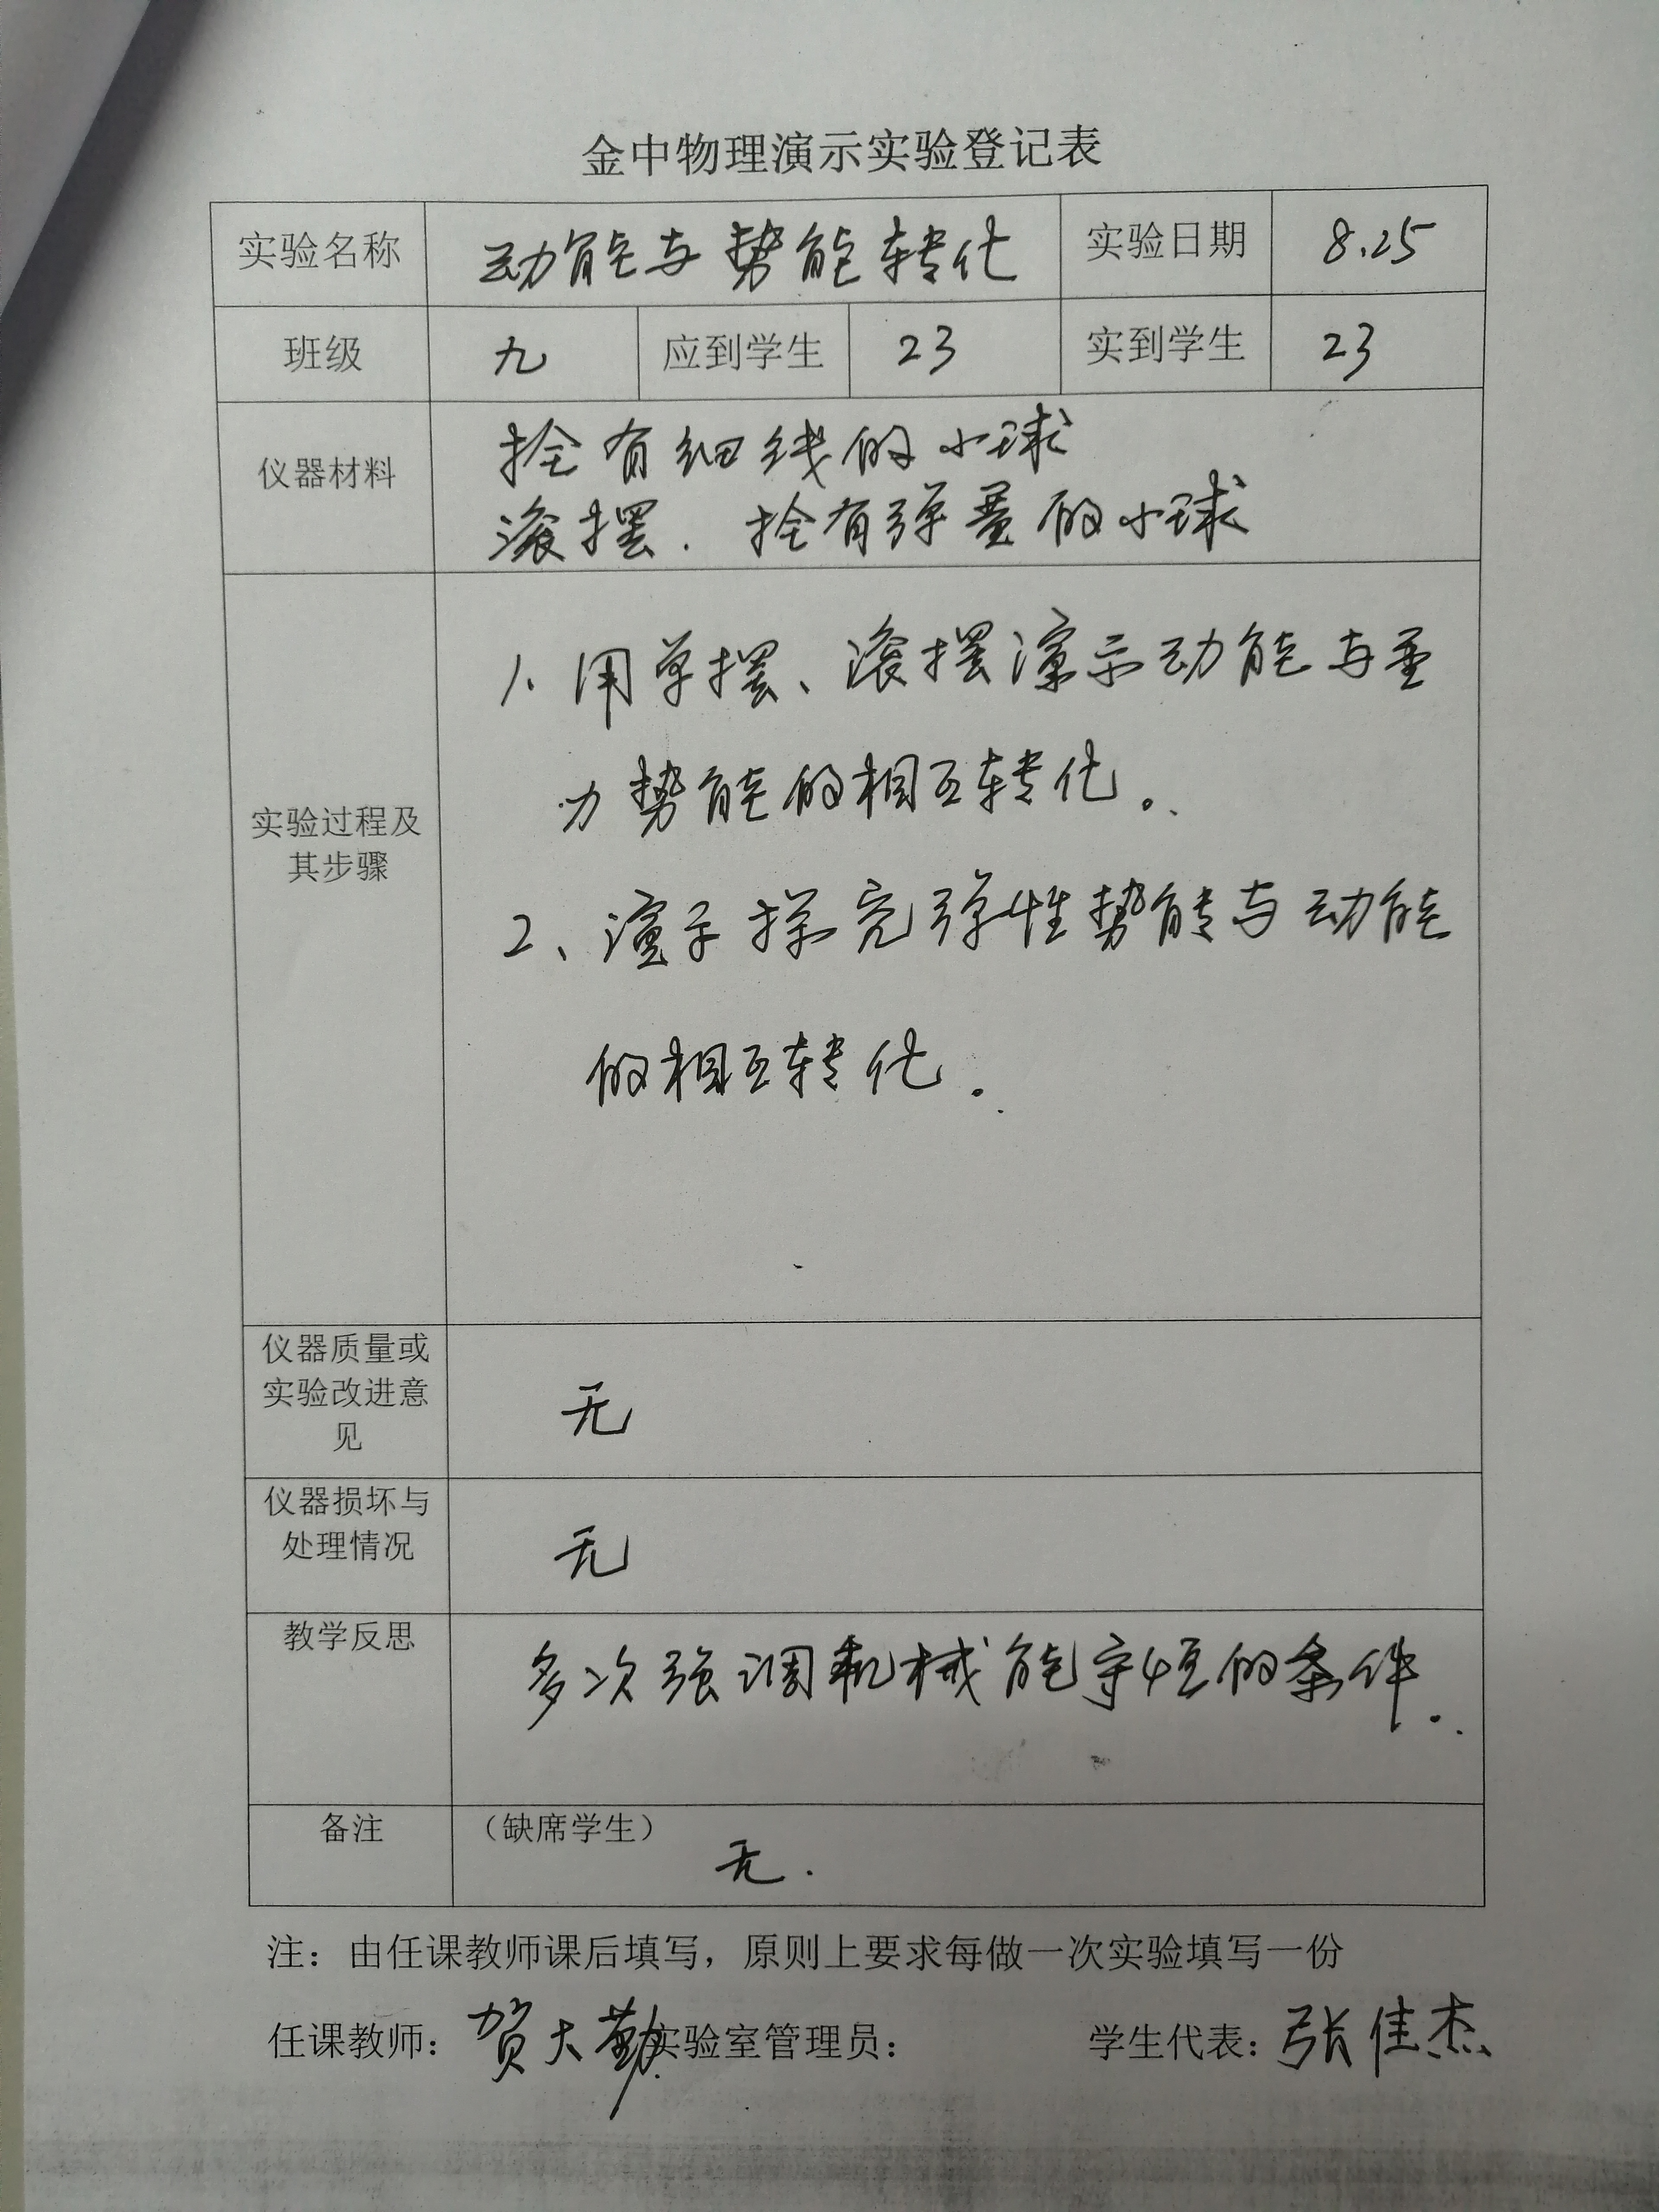 金中物理演示实验登记表
实验名称 动能与势能转化 实验日期 8.25
班级 九 应到学生 23 实到学生 23
仪器材料 拴有细线的小球
滚摆. 拴有弹簧的小球
实验过程及
其步骤
1. 用单摆、滚摆演示动能与重
力势能的相互转化。
2、演示探究弹性势能与动能
的相互转化.
仪器质量或
实验改进意
见
无
仪器损坏与
处理情况
无
教学反思
多次强调机械能守恒的条件.
备注 （缺席学生）
无.
注：由任课教师课后填写，原则上要求每做一次实验填写一份
任课教师：贺大勤 实验室管理员： 学生代表：张佳杰